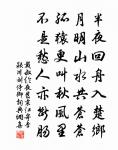 半夜回舟入楚鄉
月明山水共蒼蒼
孤猿更叫秋風裏
不是愁人亦斷腸
戴叔倫夜發袁江寄李
潁川劉侍御